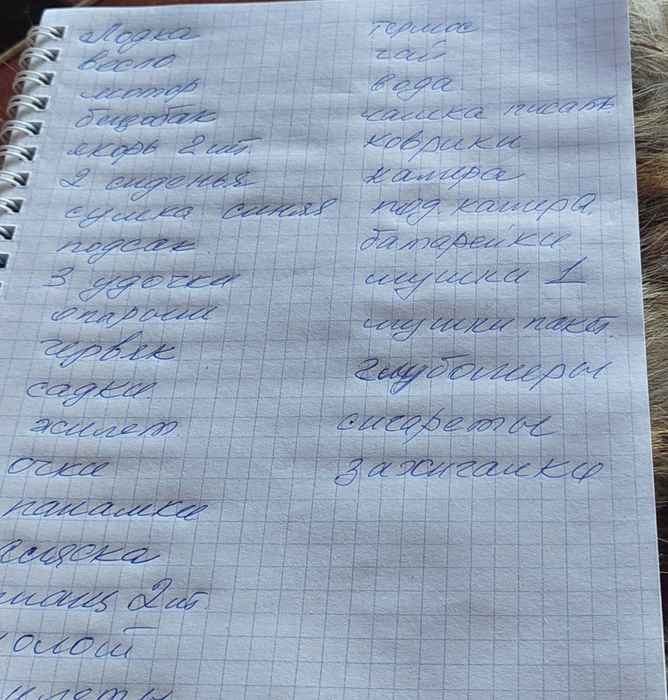 Лодка
весло
мотор
бензобак
якорь 2 шт.
2 сиденья
сумка синяя
подсак
3 удочки
опарыши
червяк
садки
жилет
очки
панамки
2 шт.
термос
чай
вода
чашка писать
коврики
камера
под. камера.
батарейки
мушки 1
мушки пакет.
глубомеры
сигареты
зажигалки